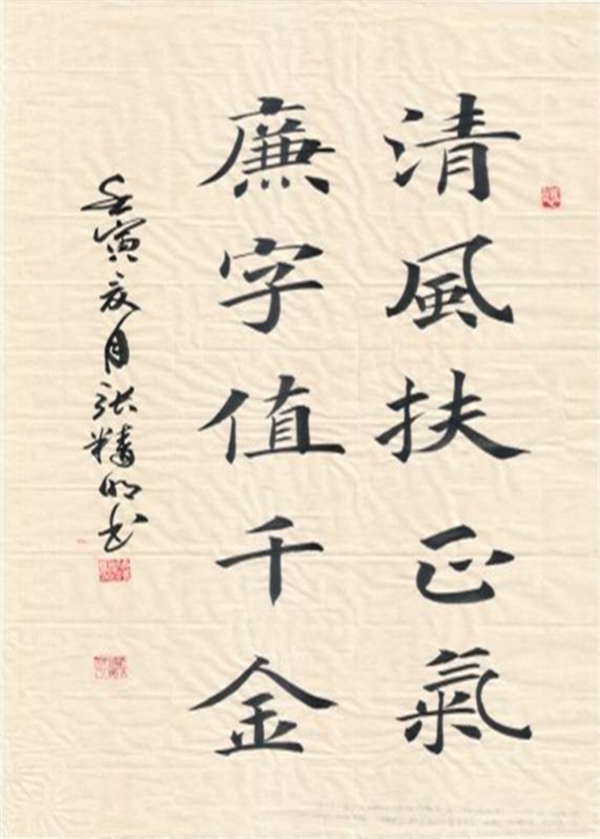 清風扶正氣
廉字值千金
壬寅亥月張精明書